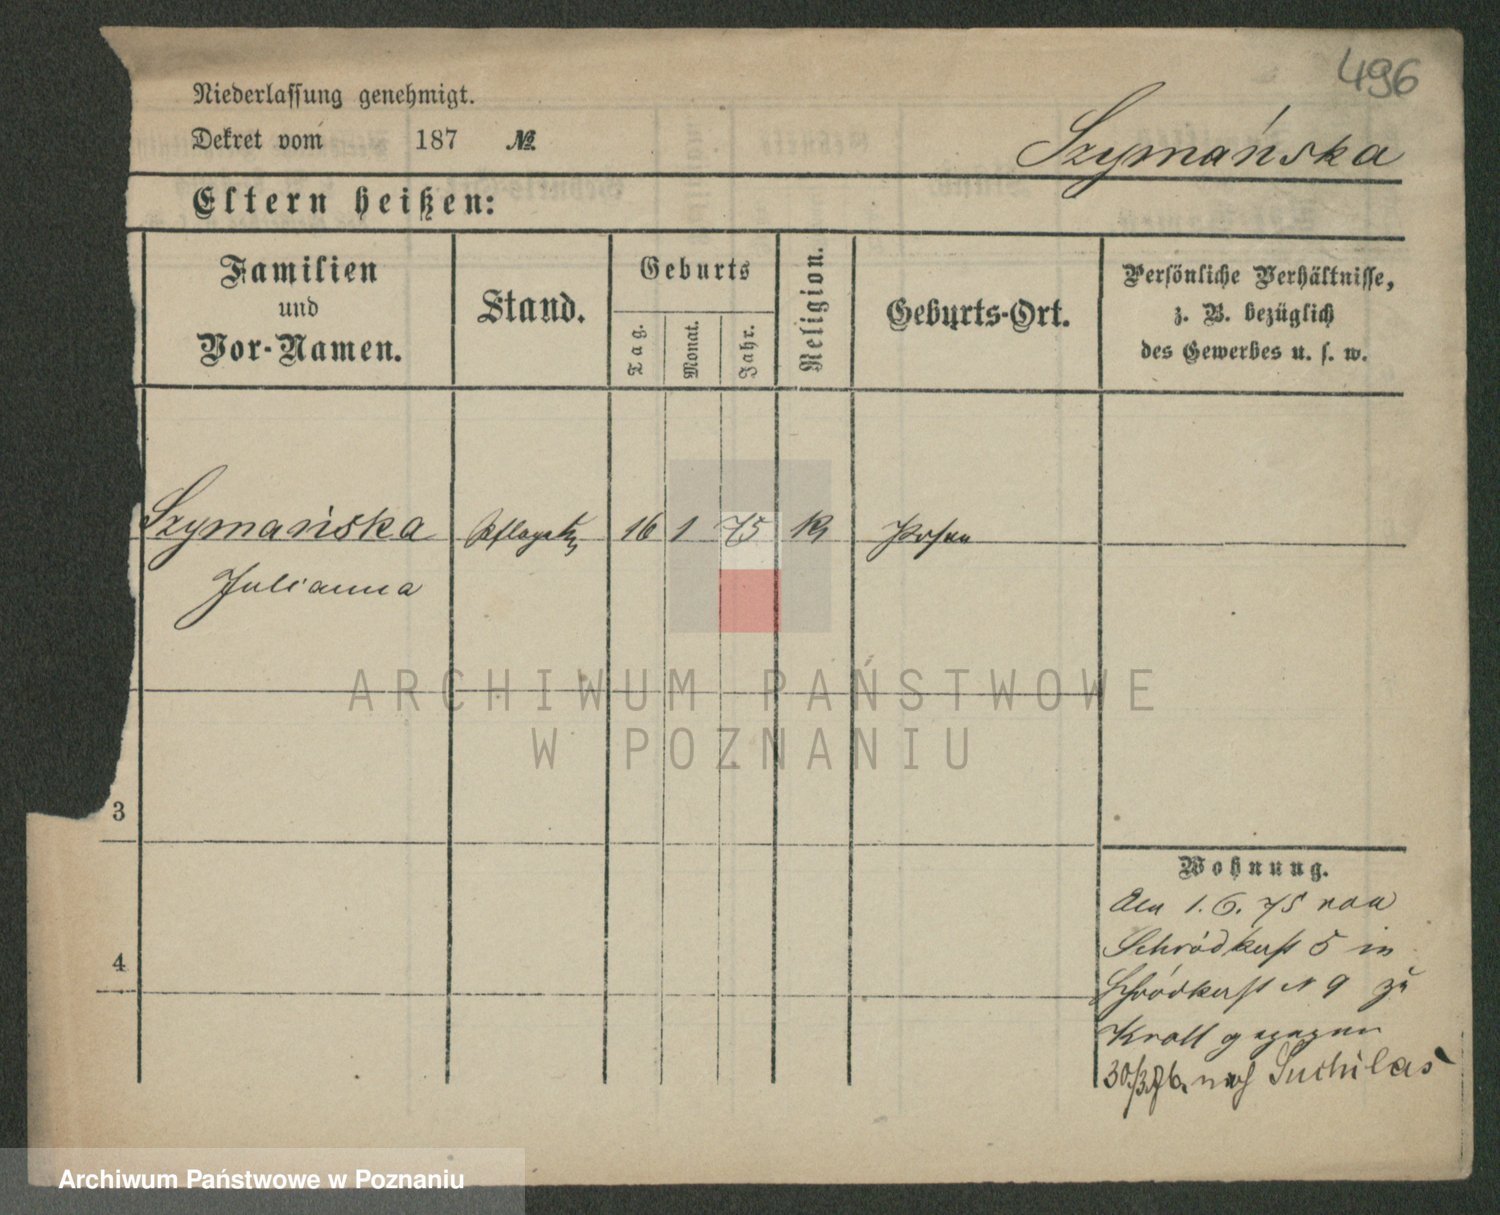 496
Niederlassung genehmigt.
Dekret vom 187 №
Szymańska
Eltern heißen:
Familien
und
Vor-Namen.
Stand.
Geburts
Tag.
Monat.
Jahr.
Religion.
Geburts-Ort.
Persönliche Verhältnisse,
z. B. bezüglich
des Gewerbes u. s. w.
Szymańska 16 1 75 K Posen
Julianna
ARCHIWUM PAŃSTWOWE
W POZNANIU
3
4
Wohnung.
Am 1.6.75 von
Schrodkerst 5 in
Schrodkerst N 9 zu
Kroll gezogen
30/3 76. nach Suchilas
Archiwum Państwowe w Poznaniu